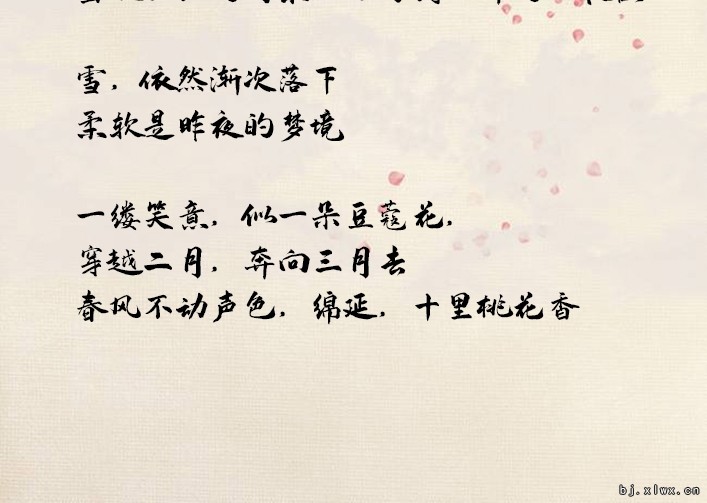 雪，依然渐次落下
柔软是昨夜的梦境
一缕笑意，似一朵豆蔻花，
穿越二月，奔向三月去
春风不动声色，绵延，十里桃花香
bj.xlwx.cn